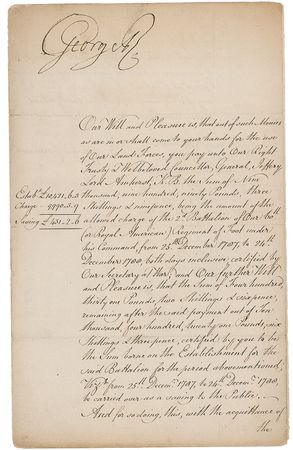 George R.
Our Will and Pleasure is, that out of such Monies
as are or shall come to your hands for the use
of Our Land Forces, you pay unto Our Right
Trusty & Welbeloved Councellor, General, Jeffery
Lord Amherst, K.B. the Sum of Nine
thousand, nine hundred, ninety Pounds, three
Shillings & ninepence, being the amount of the
allowed charge of the 2d. Battalion of Our 60th.
(or Royal American) Regiment of Foot under
his Command, from 25th. December 1787, to 24th.
December 1788 both days inclusive, certified by
Our Secretary at War; and Our further Will
and Pleasure is, that the Sum of Four hundred,
thirty one Pounds, two Shillings & sixpence,
remaining after the said payment out of Ten
thousand, four hundred, twenty one Pounds, six
Shillings & three pence, certified by you to be
the Sum borne on the Establishment for the
said Battalion for the period abovementioned,
Vizt. from 25th. Decemr. 1787, to 24th. Decemr. 1788,
be carried over as a saving to the Public.
And for so doing, this, with the acquittance of
the
Establt. £10,421.6.3
Charge 9990.3.9
Saving £431.2.6